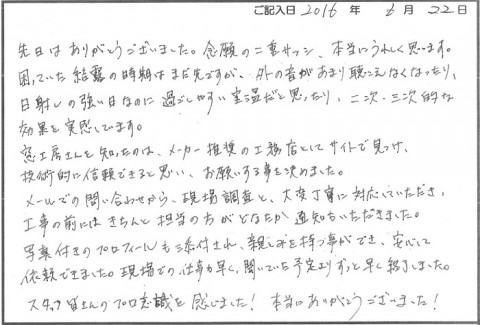 ご記入日 2016 年 6 月 22 日
先日はありがとうございました。念願の二重サッシ、本当にうれしく思います。
困っていた結露の時期はまだ先ですが、外の音があまり聴こえなくなったり、
日射しの強い日なのに過ごしやすい室温だと思ったり、二次・三次的な
効果を実感しています。
窓工房さんを知ったのは、メーカー推奨の工務店としてサイトで見つけ、
技術的に信頼できると思い、お願いする事を決めました。
メールでの問い合わせから、現場調査と、大変丁寧に対応していただき、
工事の前にはきちんと担当の方がどなたか通知もいただきました。
写真付きのプロフィールも添付され、親しみを持つ事ができ、安心して
依頼できました。現場での仕事も早く、聞いていた予定よりずっと早く終了しました。
スタッフ皆さんのプロ意識を感じました！ 本当にありがとうございました！